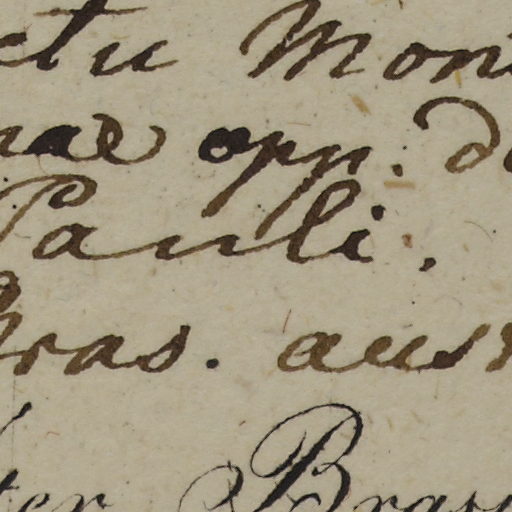 ctu Mon
nae opp. d
Pauli.
Bras. aus
ter Bras